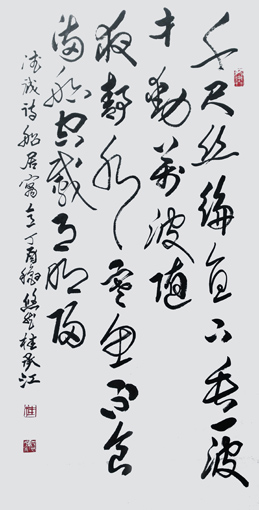 千尺丝纶直下垂一波
才動萬波随
夜静水寒魚不食
满船空載月明归
德诚诗船居寓意丁酉桂承江